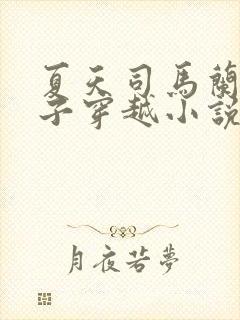 夏天司馬蘭
子穿越小說
月夜若夢